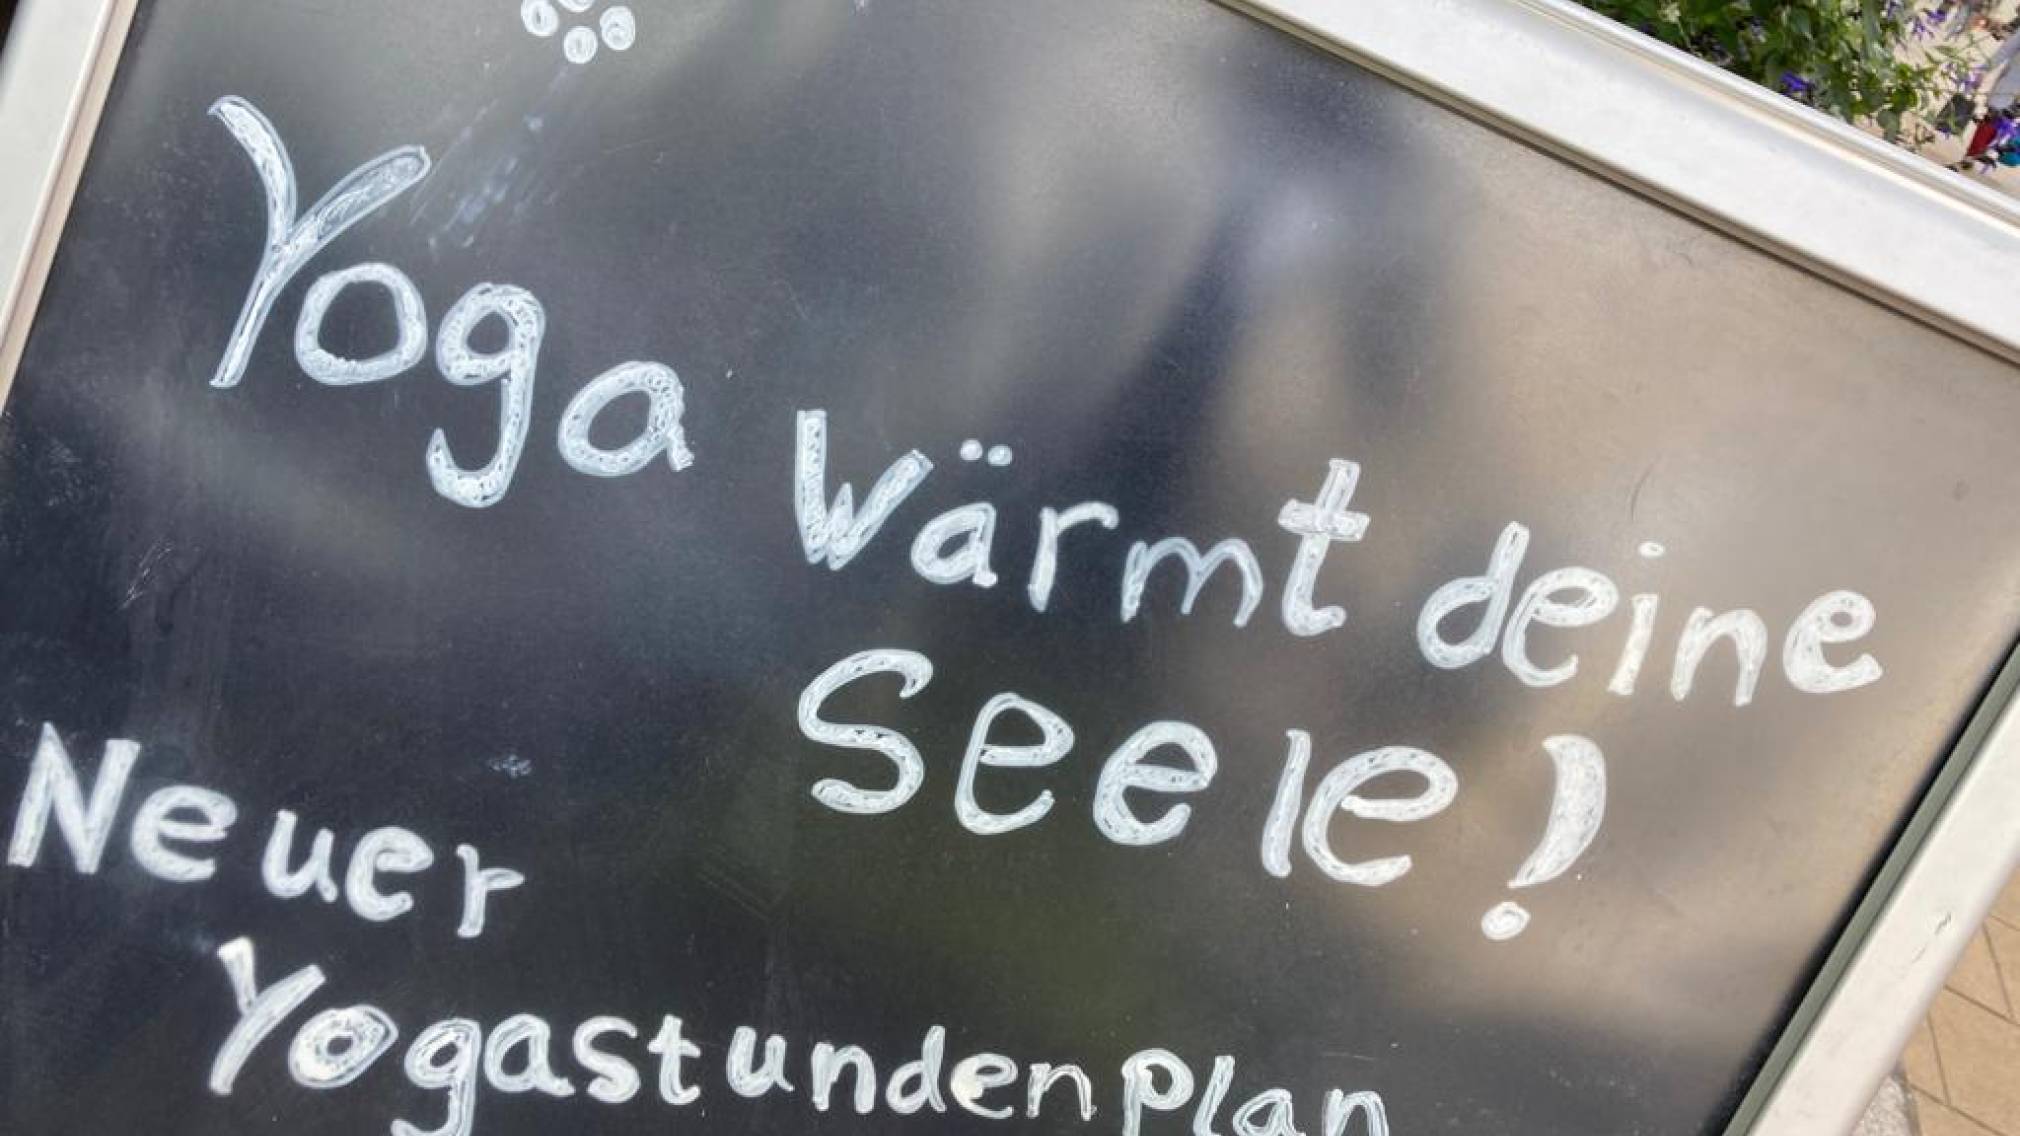 Yoga wärmt deine
Seele!
Neuer
Yogastundenplan